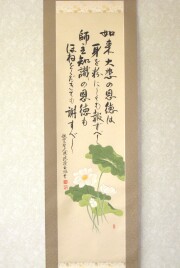 如来大悲の恩徳は
身を粉にしても報すべし
師主知識の恩徳も
ほねをくだきても謝すべし